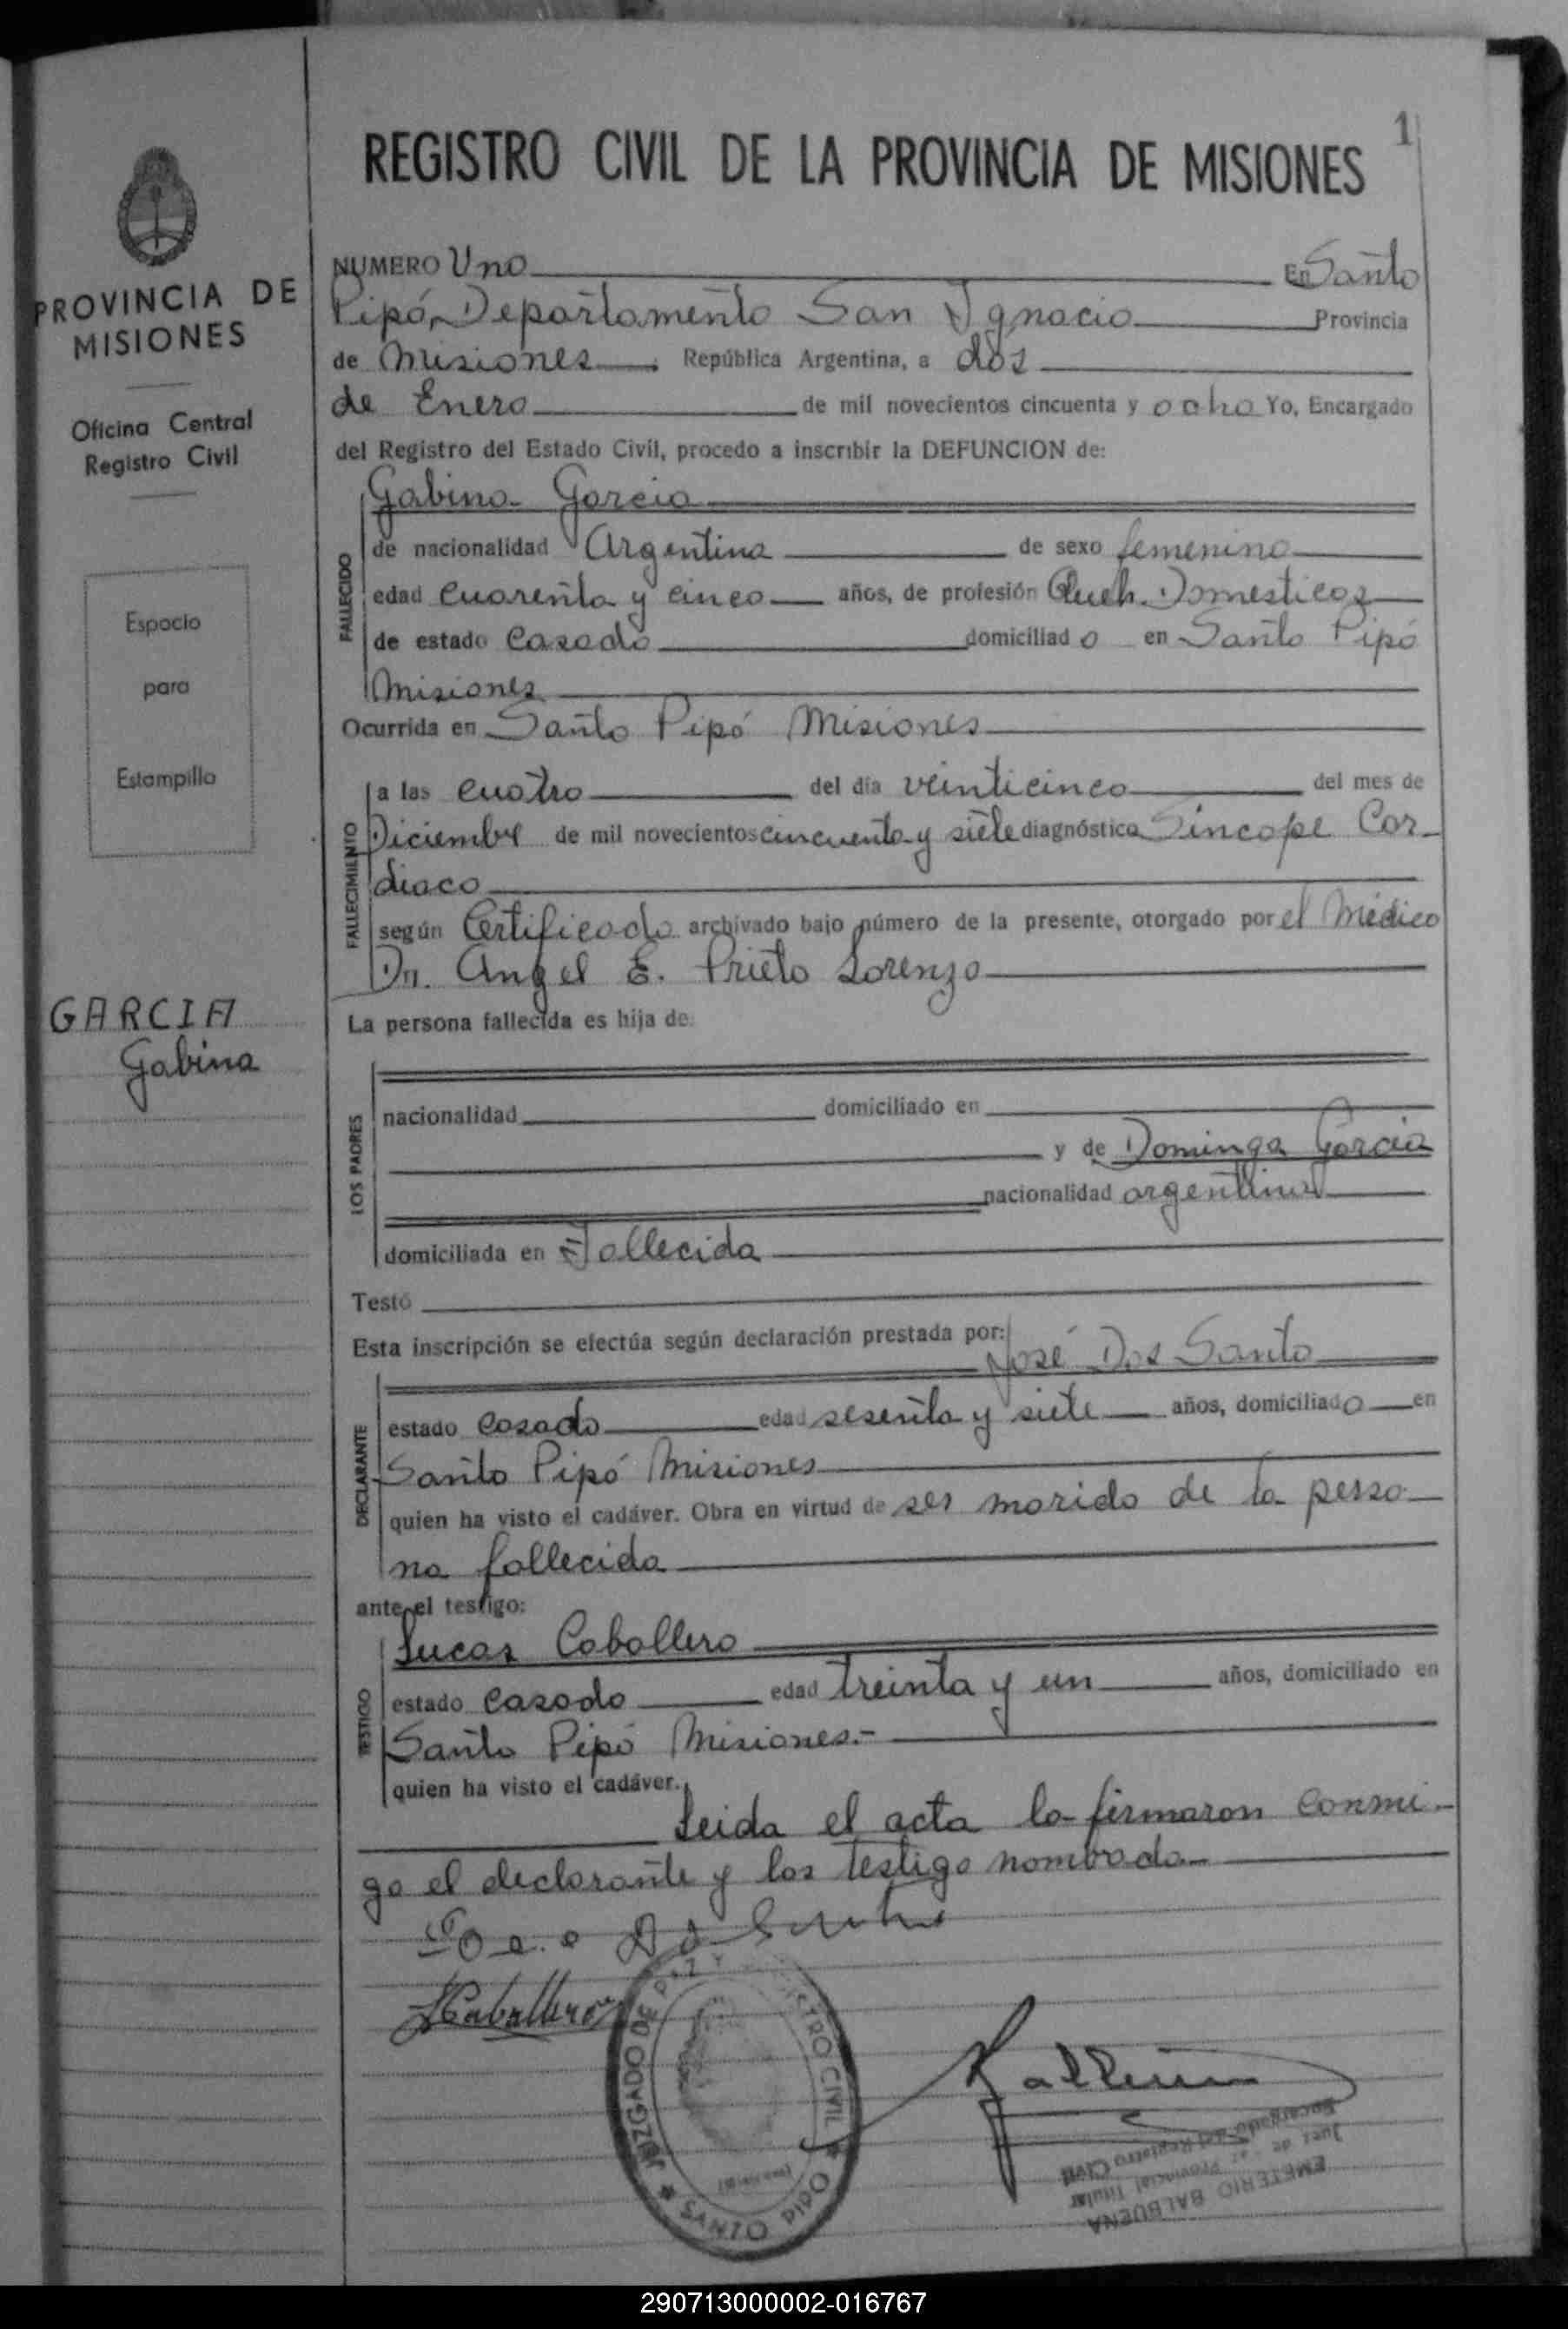 1
REGISTRO CIVIL DE LA PROVINCIA DE MISIONES
PROVINCIA DE
MISIONES
Oficina Central
Registro Civil
Espacio
para
Estampilla
GARCIA
Gabina
NUMERO Uno En Santo
Pipó, Departamento San Ignacio Provincia
de Misiones República Argentina, a dos
de Enero de mil novecientos cincuenta y ocho Yo, Encargado
del Registro del Estado Civil, procedo a inscribir la DEFUNCION de:
Gabina Garcia
FALLECIDO
de nacionalidad Argentina de sexo femenino
edad cuarenta y cinco años, de profesión Queh. Domesticos
de estado casado domiciliado en Santo Pipó
Misiones
Ocurrida en Santo Pipó Misiones
FALLECIMIENTO
a las cuatro del día veinticinco del mes de
Diciembre de mil novecientos cincuenta y siete diagnóstico Sincope Car-
diaco
según Certificado archivado bajo número de la presente, otorgado por el Médico
Dn. Angel E. Prieto Lorenzo
La persona fallecida es hija de:
LOS PADRES
nacionalidad domiciliado en
y de Dominga Garcia
nacionalidad argentina
domiciliada en Fallecida
Testó
Esta inscripción se efectúa según declaración prestada por:
José Dos Santo
DECLARANTE
estado casado edad sesenta y siete años, domiciliado en
Santo Pipó Misiones
quien ha visto el cadáver. Obra en virtud de ser marido de la perso-
na fallecida
ante el testigo:
Lucas Caballero
TESTIGO
estado casado edad treinta y un años, domiciliado en
Santo Pipó Misiones.-
quien ha visto el cadáver.
Leida el acta la firmaron conmi-
go el declarante y los testigo nombrado
LCaballero
JUZGADO DE PAZ Y REGISTRO CIVIL
SANTO PIPO
EMETERIO BALBUENA
Juez de Paz Provincial Titular
Encargado del Registro Civil
290713000002-016767